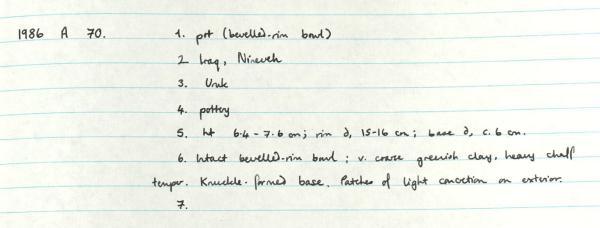 1986 A 70. 1. pot (bevelled-rim bowl)
2 Iraq, Nineveh
3. Uruk
4. pottery
5. ht 6.4 - 7.6 cm; rim d, 15-16 cm; base d, c. 6 cm.
6. Intact bevelled-rim bowl; v. coarse greenish clay, heavy chaff
temper. Knuckle-formed base. Patches of light concretion on exterior.
7.